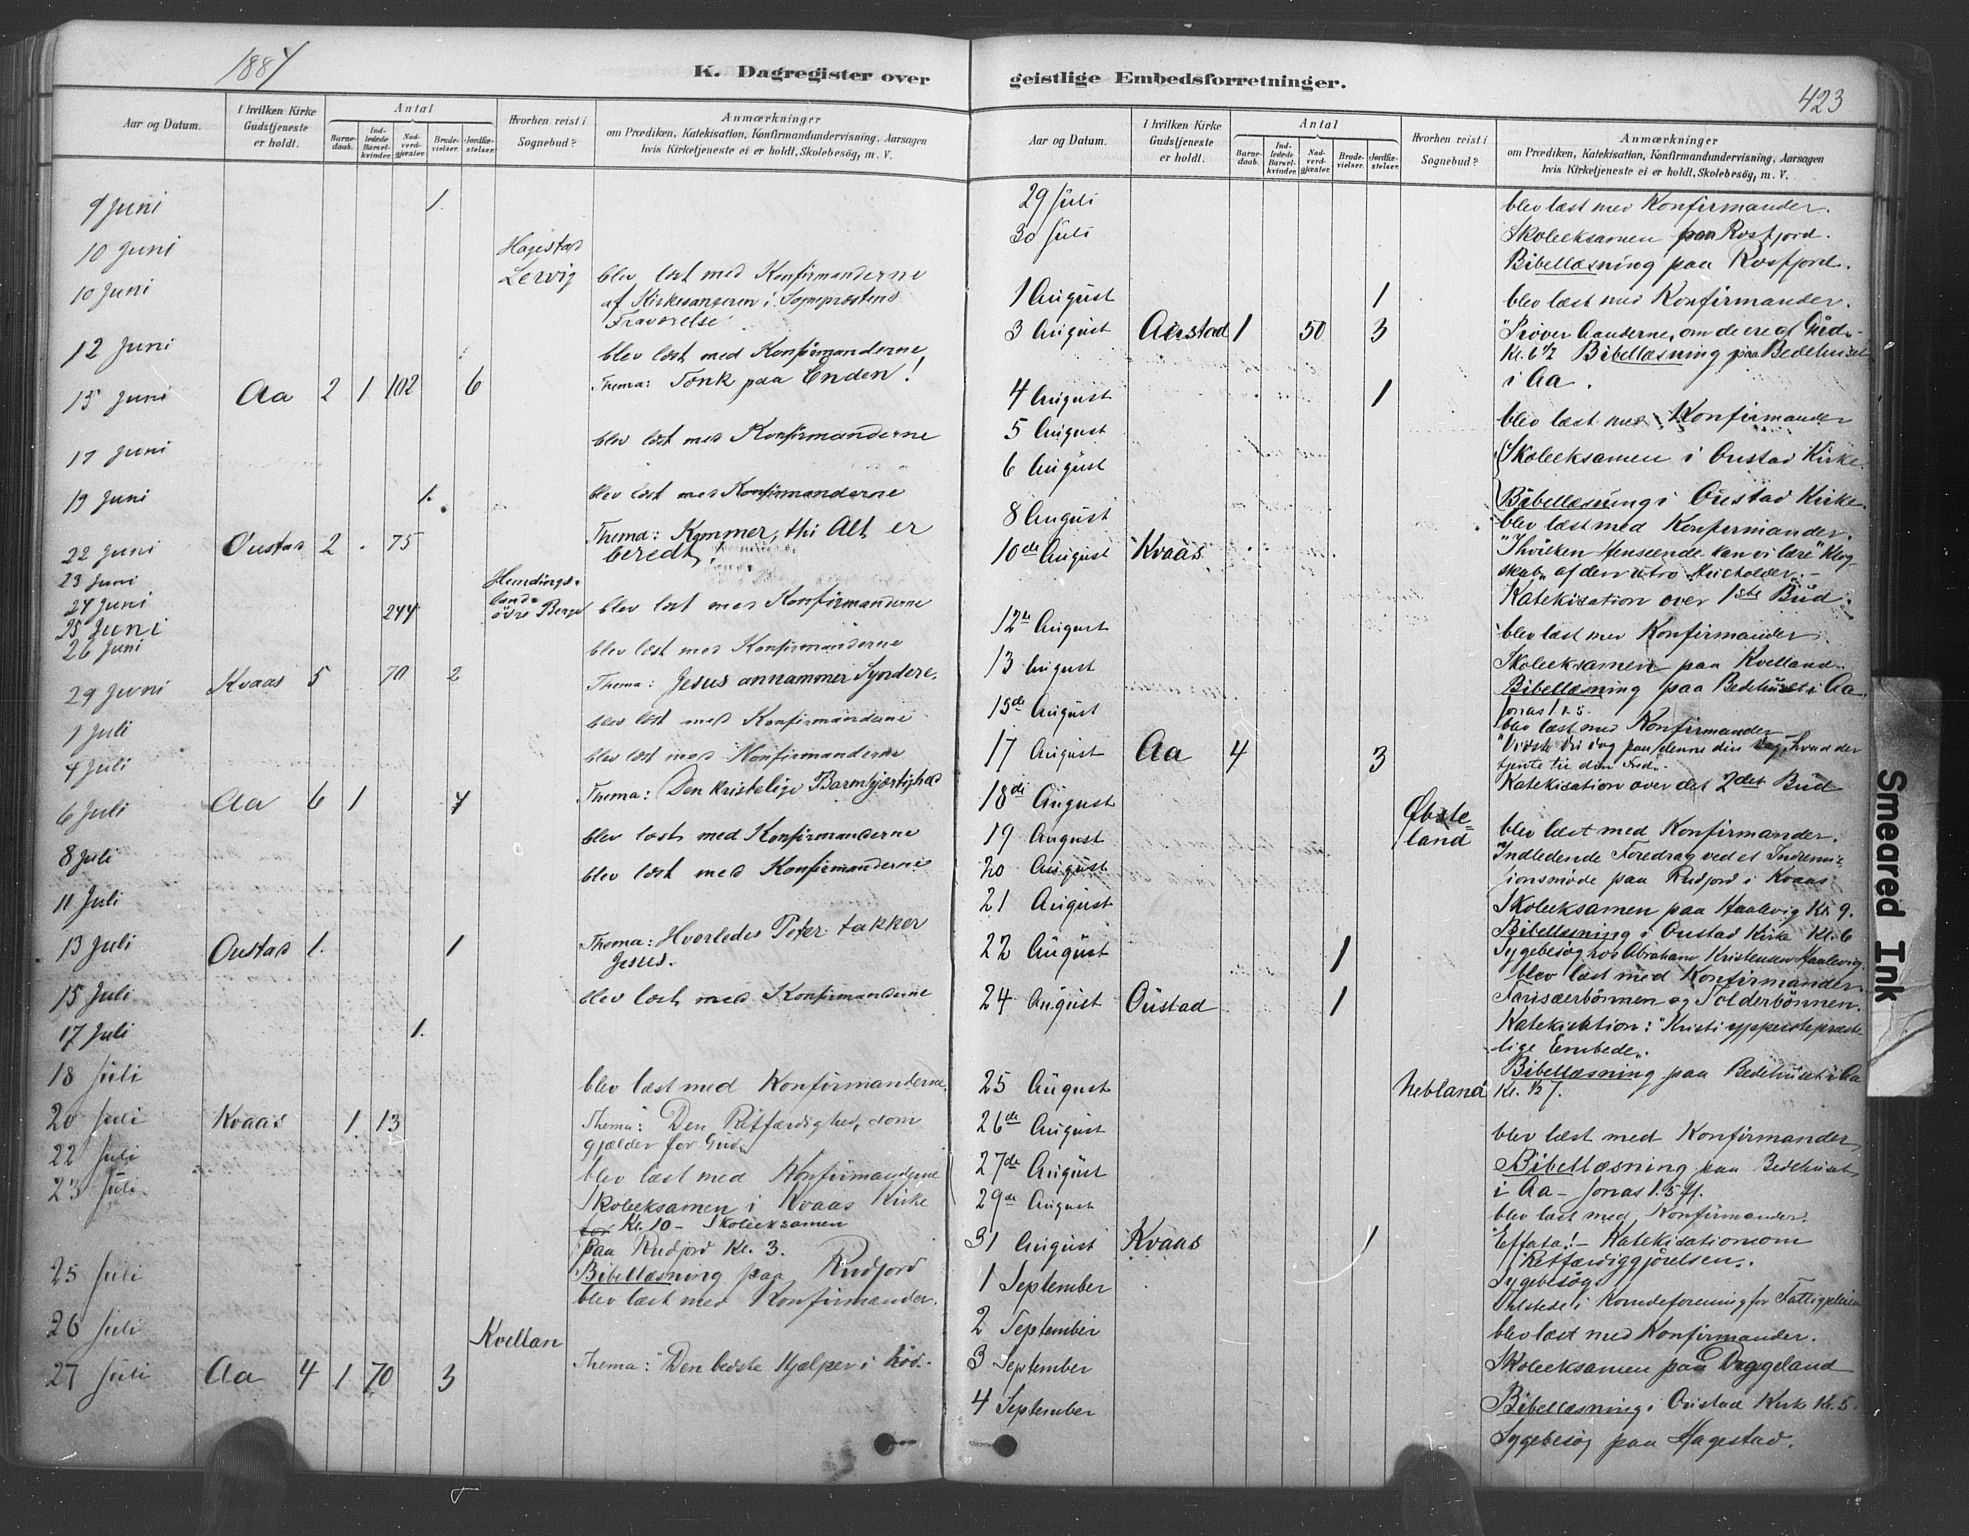 1884
K. Dagregister over
Aar og Datum.
I hvilken Kirke Gudstjeneste er holdt.
Antal
Barnedaab.
Indledede Barselkvinder.
Nadverdgjæster.
Brudevielser.
Jordfæstelser.
Hvorhen reist i Sognebud?
Anmærkninger
om Prædiken, Katekisation, Konfirmandundervisning, Aarsagen
hvis Kirketjeneste ei er holdt, Skolebesøg, m. V.
9 Juni 1.
10 Juni Hagestad
10 Juni Lervig blev læst med Konfirmanderne
af Kirkesangeren i Sogneprestens
Fraværelse.
12 Juni blev læst med Konfirmanderne
15 Juni Aa 2 1 102 6 Thema: Tænk paa Enden!
17 Juni blev læst med Konfirmanderne
19 Juni 1. blev læst med Konfirmanderne
22 Juni Oustad 2 . 75 Thema: Kommer, thi Alt er
beredt!
23 Juni
24 Juni 244 øvre Berge blev læst med Konfirmanderne
25 Juni
26 Juni blev læst med Konfirmanderne
29 Juni Kvaas 5 70 2 Thema: Jesus annammer Syndere.
1 Juli blev læst med Konfirmanderne
4 Juli blev læst med Konfirmanderne
6 Juli Aa 6 1 Thema: Den kristelige Barmhjertighed
8 Juli blev læst med Konfirmanderne
11 Juli blev læst med Konfirmanderne
13 Juli Oustad 1. 1 Thema: Hvorledes Peter takker
Jesus.
15 Juli blev læst med Konfirmanderne
17 Juli 1.
18 Juli blev læst med Konfirmanderne.
20 Juli Kvaas 1. 13 Thema: Den Retfærdighed, som
gjælder for Gud.
22 Juli blev læst med Konfirmanderne
23 Juli Skoleeksamen i Kvaas Kirke
Kl. 10 - Skoleeksamen
paa Rudjord Kl. 3.
25 Juli Bibellæsning paa Rudjord
blev læst med Konfirmander.
26 Juli Kvellan
27 Juli Aa 4 1 70 3 Thema: "Den bedste Hjælper i Nød.
geistlige Embedsforretninger.
423
Aar og Datum.
I hvilken Kirke Gudstjeneste er holdt.
Antal
Barnedaab.
Indledede Barselkvinder.
Nadverdgjæster.
Brudevielser.
Jordfæstelser.
Hvorhen reist i Sognebud?
Anmærkninger
om Prædiken, Katekisation, Konfirmandundervisning, Aarsagen
hvis Kirketjeneste ei er holdt, Skolebesøg, m. V.
29 Juli blev læst med Konfirmander.
30 Juli Skoleeksamen paa Rosfjord.
Bibellæsning paa Rosfjord.
1 August 1 blev læst med Konfirmander.
3 August Austad 1 50 3 "Prøver Aanderne, om de ere af Gud.
Kl. 6½ Bibellæsning paa Bedehuset
i Aa.
4 August 1
5 August blev læst med Konfirmander
6 August Skoleeksamen i Oustad Kirke.
Bibellæsning i Oustad Kirke
8 August blev læst med Konfirmander.
10de August Kvaas "I hvilken Henseende kan vi lære Klog-
skab" af den utro Husholder.
Katekisation over 1ste Bud.
12te August blev læst med Konfirmander.
13 August Skoleeksamen paa Kvelland.
Bibellæsning paa Bedehuset i Aa.
Jonas 1.
15de August blev læst med Konfirmander
17 August Aa 4 3 "Vidste du dog paa denne din Dag, hvad der
tjente til din Fred".
Katekisation over det 2det Bud
18de August Øbste-
land
19 August blev læst med Konfirmander.
20 August Indledende Foredrag ved et Indremis-
sionsmøde paa Rudjord i Kvaas
21 August Skoleeksamen paa Haalevig Kl. 9.
Bibellæsning i Oustad Kirke Kl. 6
22 August 1 Sygebesøg hos Abraham Kristensen Haalevig.
blev læst med Konfirmander.
24 August Oustad 1 Farisæerbønnen og Tolderbønnen.
Katekisation: "Kristi ypperstepræste-
lige Embede".
25 August Nebland Bibellæsning paa Bedehuset i Aa
Kl. ½7.
26de August blev læst med Konfirmander
27de August Bibellæsning paa Bedehuset
i Aa - Jonas 1.5 ff.
29de August blev læst med Konfirmander.
31 August Kvaas 1 "Effata!" - Katekisation om
Retfærdiggjørelsen.
1 September Sygebesøg
Tilstede i
2 September blev læst med Konfirmander.
3 September Skoleeksamen paa Drageland
4 September Bibellæsning i Oustad Kirke Kl. 5.
Sygebesøg paa Hagestad.
Smeared Ink